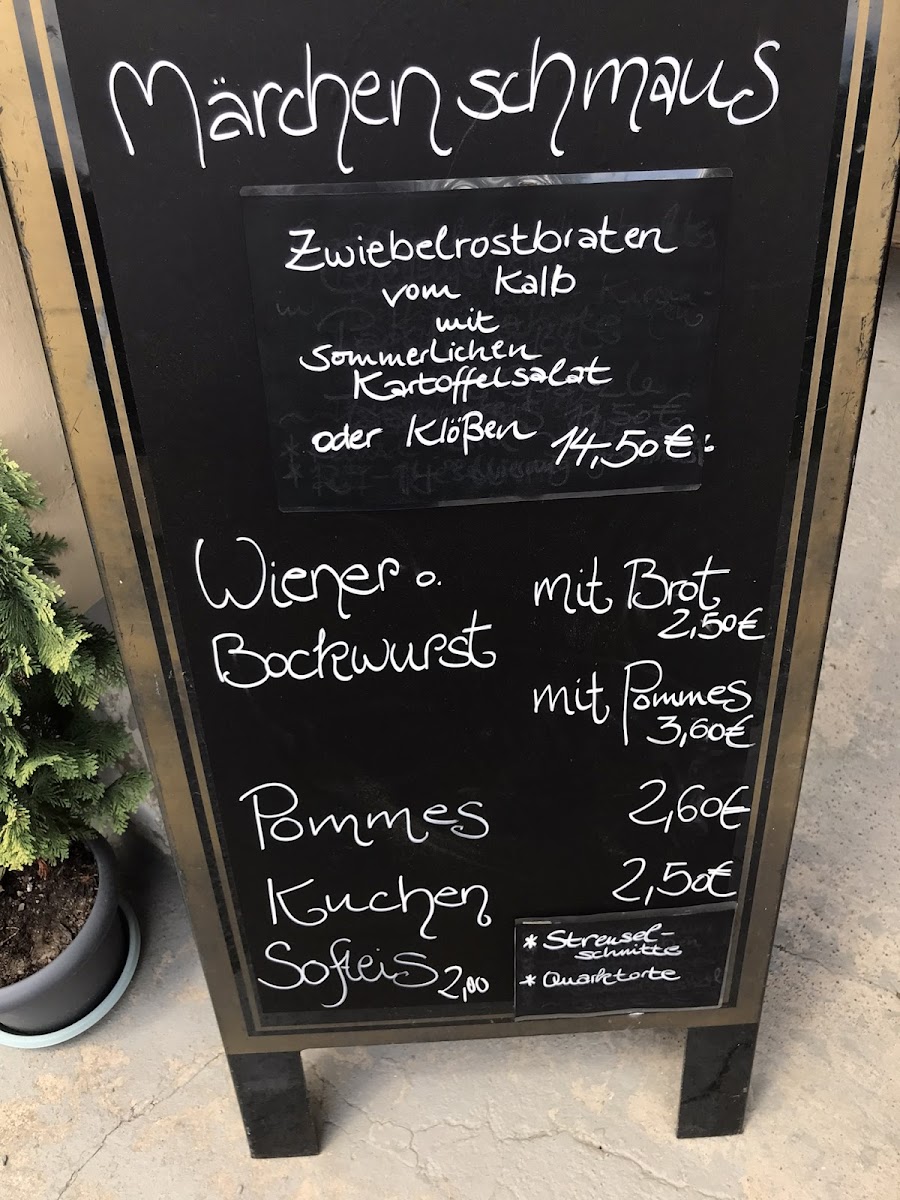 Märchenschmaus
Zwiebelrostbraten
vom Kalb
mit
Sommerlichen
Kartoffelsalat
oder Klößen 14,50€
Wiener o.
Bockwurst
mit Brot
2,50€
mit Pommes
3,60€
Pommes 2,60€
Kuchen 2,50€
* Streusel-
schnitte
* Quarktorte
Softeis 2,00